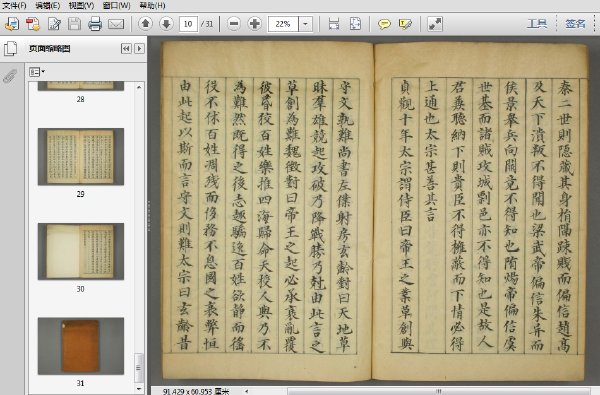 文件(F) 编辑(E) 视图(V) 窗口(W) 帮助(H)
10 / 31
22%
工具
签名
页面缩略图
28
29
30
31
秦二世則隱藏其身捐隔踈賤而偏信趙高
及天下潰叛不得聞也梁武帝偏信朱异而
侯景舉兵向闕竟不得知也隋煬帝偏信虞
世基而諸賊攻城剽邑亦不得知也是故人
君兼聽納下則貴臣不得擁蔽而下情必得
上通也太宗甚善其言
貞觀十年太宗謂侍臣曰帝王之業草創與
守文孰難尚書左僕射房玄齡對曰天地草
昧羣雄競起攻破乃降戰勝乃尅由此言之
草創為難魏徵對曰帝王之起必承衰亂覆
彼昏狡百姓樂推四海歸命天授人與乃不
為難然既得之後志趣驕逸百姓欲靜而徭
役不休百姓凋殘而侈務不息國之衰弊恒
由此起以斯而言守文則難太宗曰玄齡昔
91.429 x 60.953 厘米